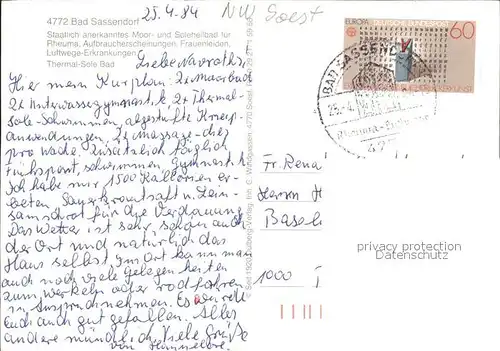 25.4.84
NW Soest
4772 Bad Sassendorf
Staatlich anerkanntes Moor- und Soleheilbad für
Rheuma, Aufbraucherscheinungen, Frauenleiden,
Luftwege-Erkrankungen
Thermal-Sole Bad
EUROPA DEUTSCHE BUNDESPOST
60
BAD SASSENDORF
25.-4.
Liebe
Hier mein Kurplan: 2x Moorbad
2x Unterwassergymnastik, 2x Thermal-
Sole-Schwimmen, abgestufte Kneip-
anwendungen, 2x Massage - dies
pro Woche. Zusätzlich täglich
Frühsport, schwimmen, Gymnastik
Ich habe nur 1500 Kallorien er-
beten. Sauerkrautsaft u. Lein-
samschrot für die Verdauung.
Das Wetter ist sehr schön auch
der Ort und natürlich das
Haus selbst. Im Ort kann man
auch noch viele Gelegenheiten
zum werkeln oder radfahren
in Anspruch nehmen. Es würde
Euch auch gut gefallen. Alles
andere mündlich. Viele Grüße
von
Fr. Rena
Herrn H
Basel
1000
privacy protection
Datenschutz